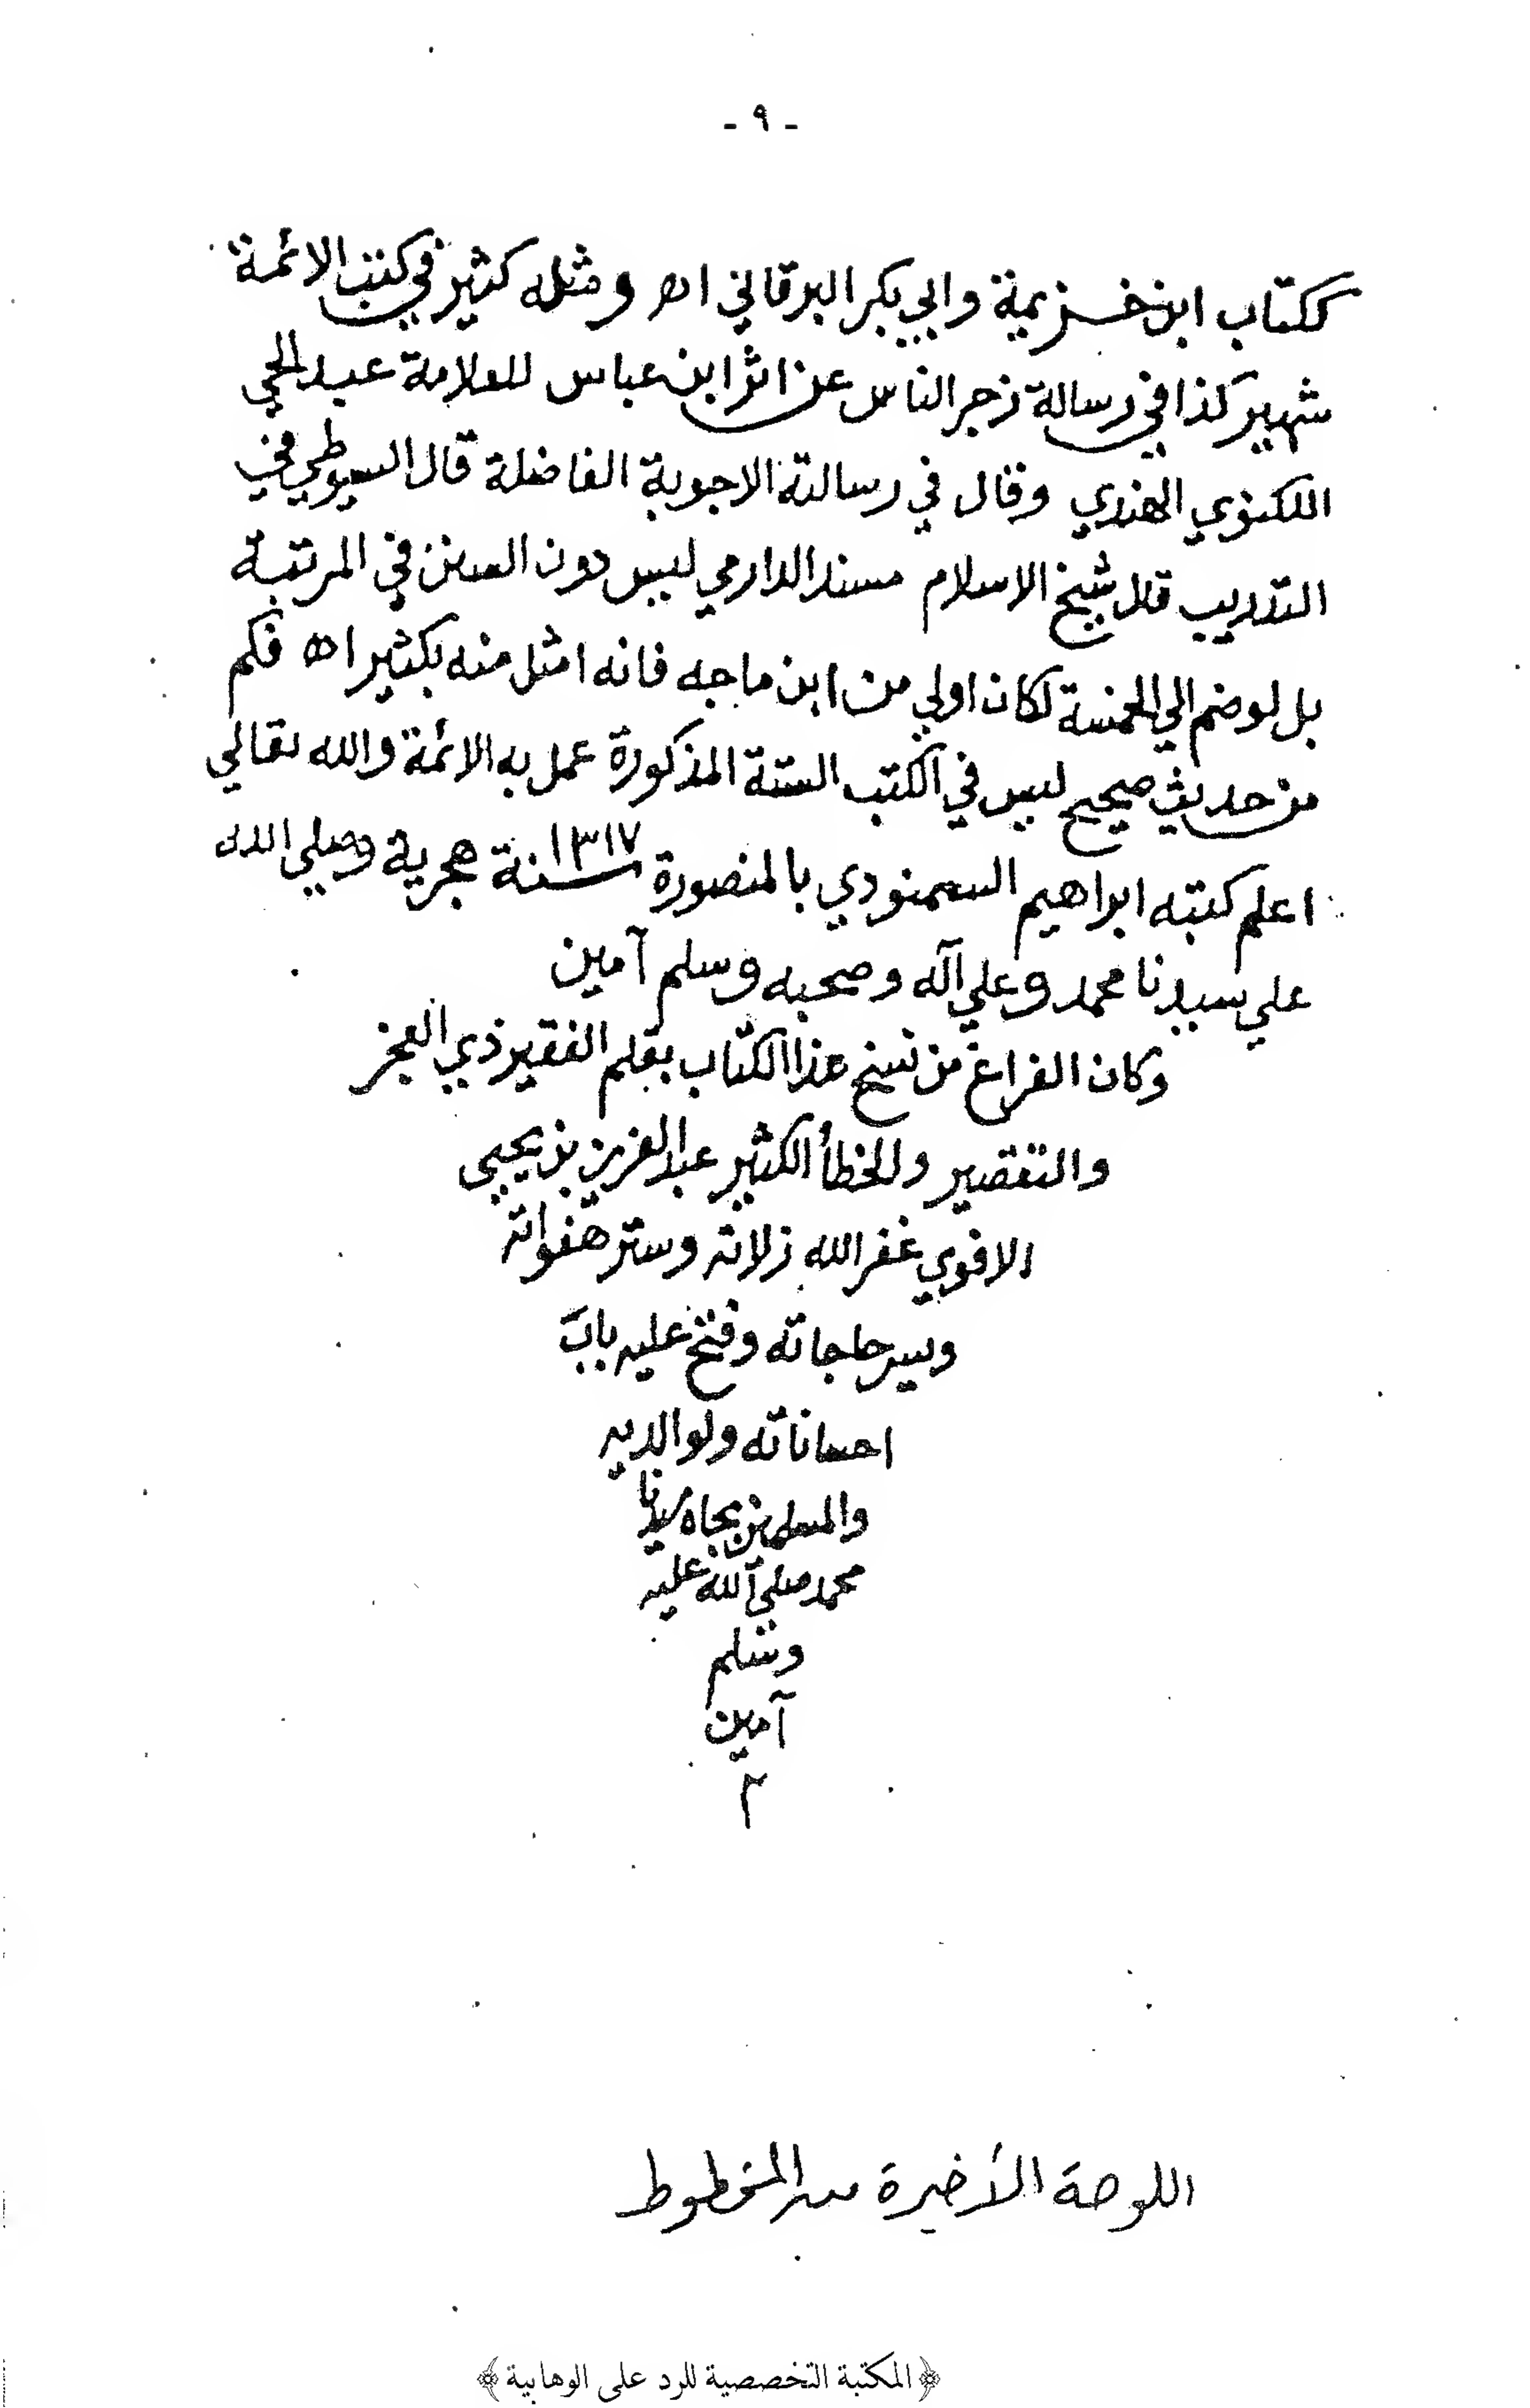 - ٩ -
ككتاب ابن خزيمة وابي بكر البرقاني اه ومثله كثير في كتب الائمة
شهير كذا في رسالة زجر الناس عن اثر ابن عباس للعلامة عبد الحي
اللكنوي الهندي وقال في رسالته الاجوبة الفاضلة قال السيوطي في
التدريب قال شيخ الاسلام مسند الدارمي ليس دون السنن في المرتبة
بل لو ضم الي الخمسة لكان اولي من ابن ماجه فانه امثل منه بكثير اه فكم
من حديث صحيح ليس في الكتب الستة المذكورة عمل به الائمة والله تعالي
اعلم كتبه ابراهيم السمنودي بالمنصورة ١٣١٧ سنة هجرية وصلي الله
علي سيدنا محمد وعلي آله وصحبه وسلم آمين
وكان الفراغ من نسخ هذا الكتاب بقلم الفقير ذي العجز
والتقصير والخطأ الكثير عبد العزيز بن يحيي
الافوي غفر الله زلاته وستر هفواته
ويسر حاجاته وفتح عليه باب
احساناته ولوالديه
والمسلمين بجاه سيدنا
محمد صلي الله عليه
وسلم
آمين
٢
اللوحة الأخيرة من المخطوط
﴿المكتبة التخصصية للرد على الوهابية﴾